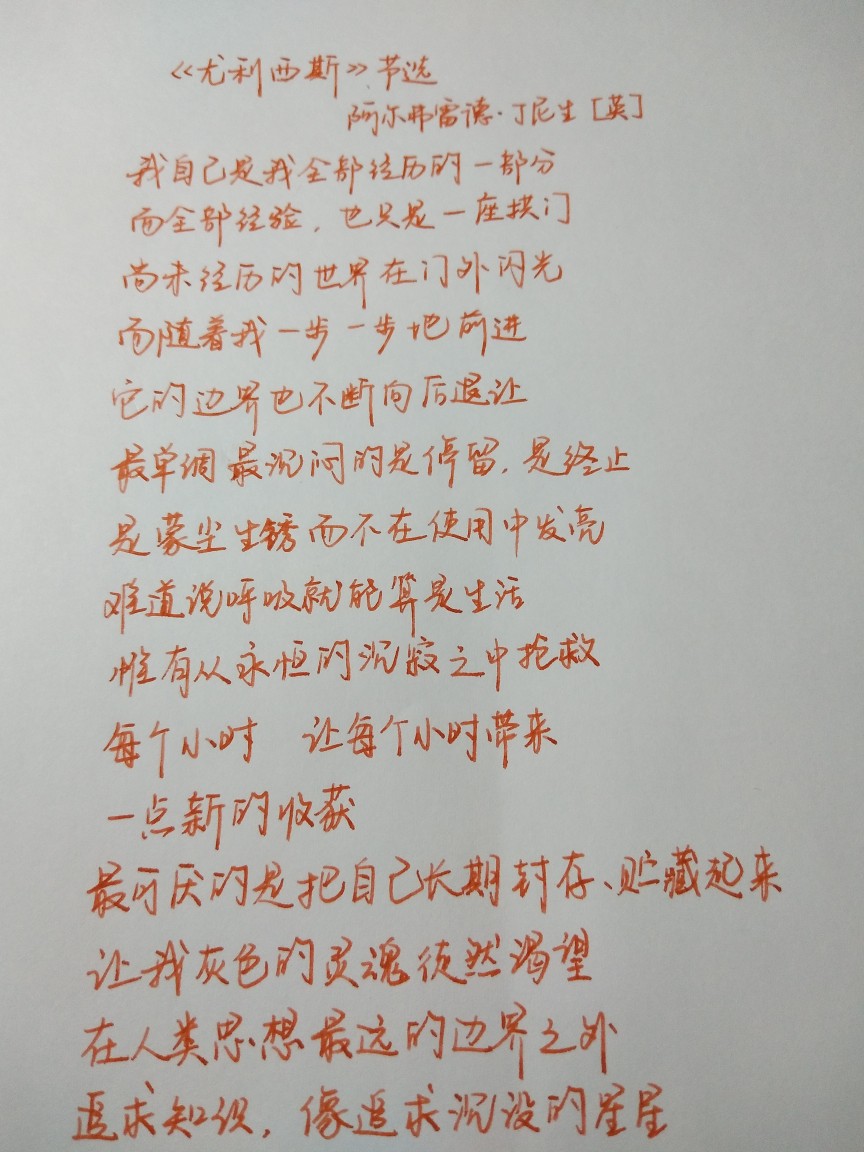 《尤利西斯》节选
阿尔弗雷德·丁尼生[英]
我自己是我全部经历的一部分
而全部经验，也只是一座拱门
尚未经历的世界在门外闪光
而随着我一步一步地前进
它的边界也不断向后退让
最单调最沉闷的是停留，是终止
是蒙尘生锈而不在使用中发亮
难道说呼吸就能算是生活
惟有从永恒的沉寂之中抢救
每个小时 让每个小时带来
一点新的收获
最可厌的是把自己长期封存、贮藏起来
让我灰色的灵魂徒然渴望
在人类思想最远的边界之外
追求知识，像追求沉没的星星